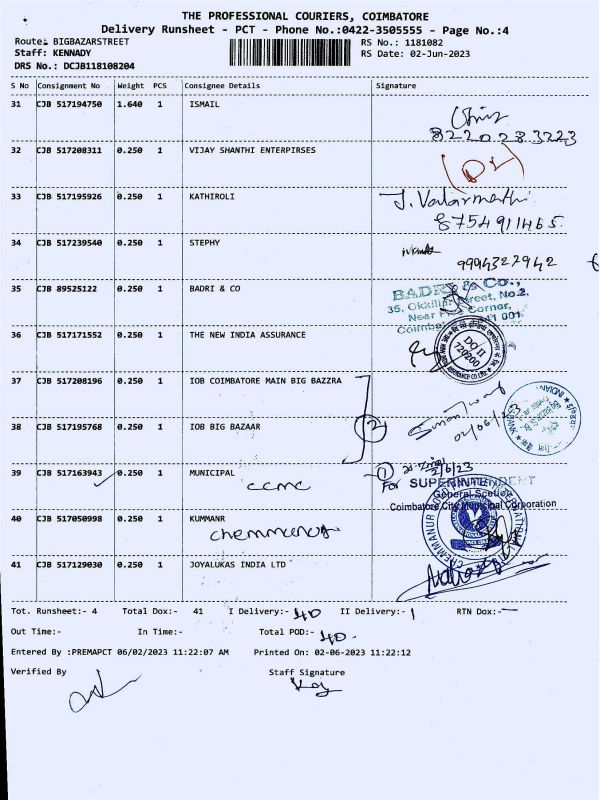 THE PROFESSIONAL COURIERS, COIMBATORE
Delivery Runsheet - PCT - Phone No.:0422-3505555 - Page No.:4
Route: BIGBAZARSTREET RS No.: 1181082
Staff: KENNADY RS Date: 02-Jun-2023
DRS No.: DCJB118108204
S No Consignment No Weight PCS Consignee Details Signature
31 CJB 517194750 1.640 1 ISMAIL
8220283223
32 CJB 517208311 0.250 1 VIJAY SHANTHI ENTERPIRSES
33 CJB 517195926 0.250 1 KATHIROLI J. Valarmathi
8754911465
34 CJB 517239540 0.250 1 STEPHY
9994327942
35 CJB 89525122 0.250 1 BADRI & CO BADRI & Co.,
35, Street, No.2,
Near Corner,
001
36 CJB 517171552 0.250 1 THE NEW INDIA ASSURANCE
DO II
720200
37 CJB 517208196 0.250 1 IOB COIMBATORE MAIN BIG BAZZRA
02/06/23
38 CJB 517195768 0.250 1 IOB BIG BAZAAR 2
39 CJB 517163943 0.250 1 MUNICIPAL 1 2/6/23
ccmc For SUPERINTENDENT
General Section
Coimbatore City Municipal Corporation
40 CJB 517050998 0.250 1 KUMMANR
chemmanur
41 CJB 517129030 0.250 1 JOYALUKAS INDIA LTD
Tot. Runsheet:- 4 Total Dox:- 41 I Delivery:- 40 II Delivery:- 1 RTN Dox:-
Out Time:- In Time:- Total POD:- 40
Entered By :PREMAPCT 06/02/2023 11:22:07 AM Printed On: 02-06-2023 11:22:12
Verified By Staff Signature